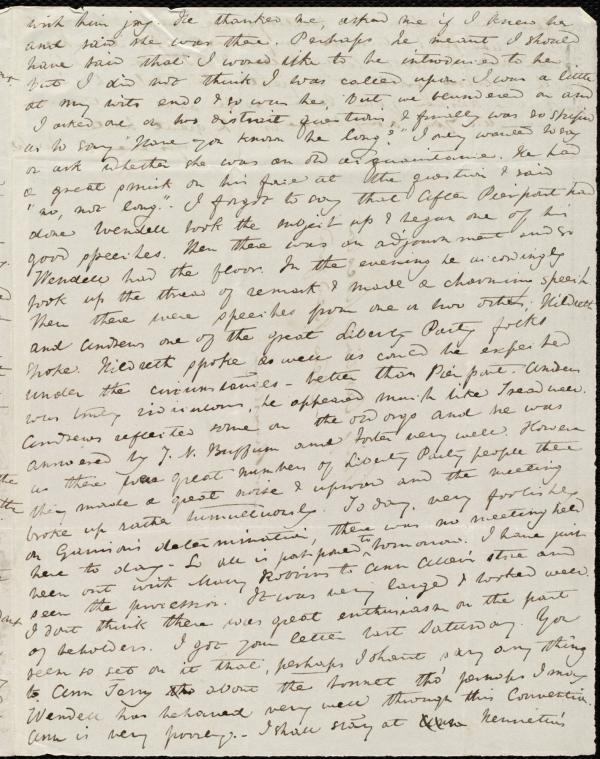 with him joy. He thanked me, asked me if I knew her
and said she was there. Perhaps he meant I should
have said that I would like to be introduced to her
but I did not think I was called upon. I was a little
at my wits ends & so was he, but we blundered on and
I asked one or two distrait questions, & finally was so stupid
as to say "Have you known her long?" I only wanted to say
or ask whether she was an old acquaintance. He had
a great smirk on his face at the question & said
"no, not long". I forgot to say that after Pierpont had
done Wendell took the subject up & began one of his
good speeches. Then there was an adjournment and so
Wendell had the floor. In the evening he accordingly
took up the thread of remark & made a charming speech
Then there were speeches from one or two others, Hildreth
and Andrews one of the great Liberty Party folks
spoke. Hildreth spoke as well as could be expected
under the circumstances - better than Pierpont. Andrews
was truly ridiculous, he appeared much like Treadwell.
Andrews reflected some on the old orgs and he was
answered by J. N. Buffum and Foster very well. However
as there were great numbers of Liberty Party people there
they made a great noise & uproar and the meeting
broke up rather tumultuously. Today, very foolishly
on Garrison's determination, there was no meeting held
here to day - So all is postponed to tomorrow. I have just
been out with Mary Robbins to Ann Allen's store and
seen the procession. It was very large & looked well.
I dont think there was great enthusiasm on the part
of beholders. I got your letter last Saturday. You
seem so set on it that, perhaps I shant say any thing
to Ann Terry about the bonnet tho' perhaps I may
Wendell has behaved very well through this Convention.
Ann is very poorly. - I shall stay at Henrietta's